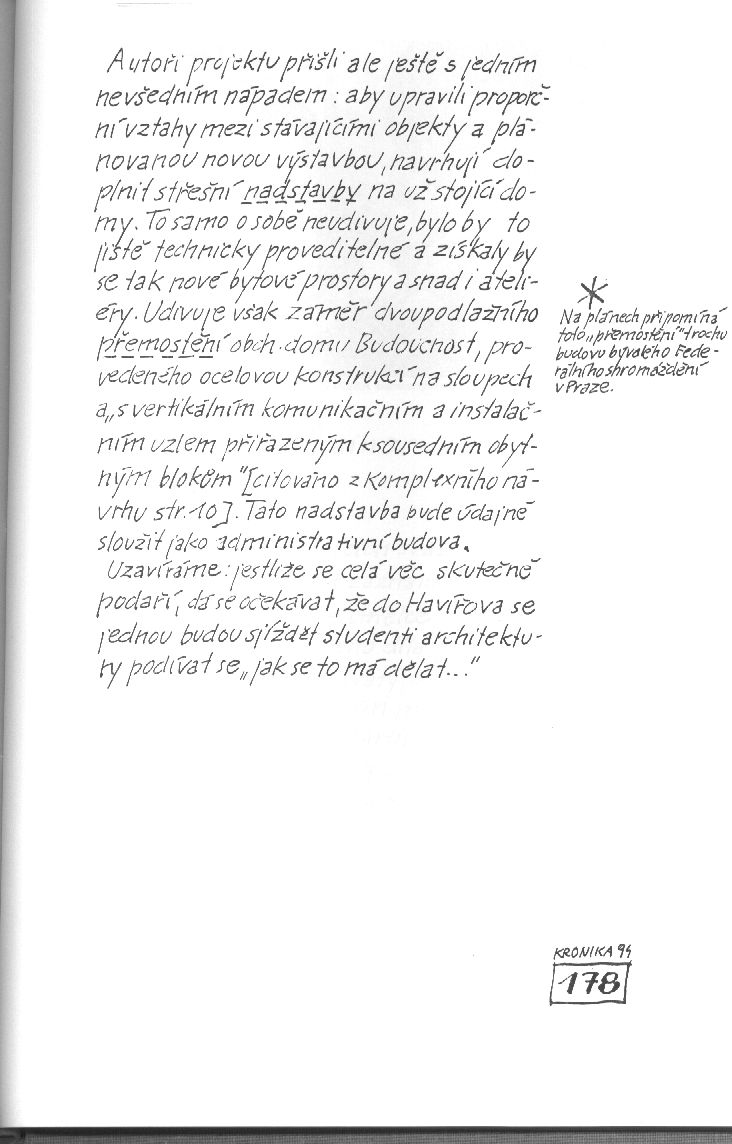 Autoři projektu přišli ale ještě s jedním
nevšedním nápadem: aby upravili proporč-
ní vztahy mezi stávajícími objekty a plá-
novanou novou výstavbou, navrhují do-
plnit střešní nadstavby na už stojící do-
my. To samo o sobě neudivuje, bylo by to
jistě technicky proveditelné a získaly by
se tak nové bytové prostory a snad i ateli-
éry. Udivuje však záměr dvoupodlažního
přemostění obch. domu Budoucnost, pro-
vedeného ocelovou konstrukcí na sloupech
a „s vertikálním komunikačním a instalač-
ním uzlem přiřazeným k sousedním obyt-
ným blokům" [citováno z Komplexního ná-
vrhu str. 10]. Tato nadstavba bude údajně
sloužit jako administrativní budova.
Uzavíráme: jestliže se celá věc skutečně
podaří, dá se očekávat, že do Havířova se
jednou budou sjíždět studenti architektu-
ry podívat se „jak se to má dělat..."
*
Na plánech připomíná
toto „přemostění" trochu
budovu bývalého Fede-
rálního shromáždění
v Praze.
KRONIKA 94
178